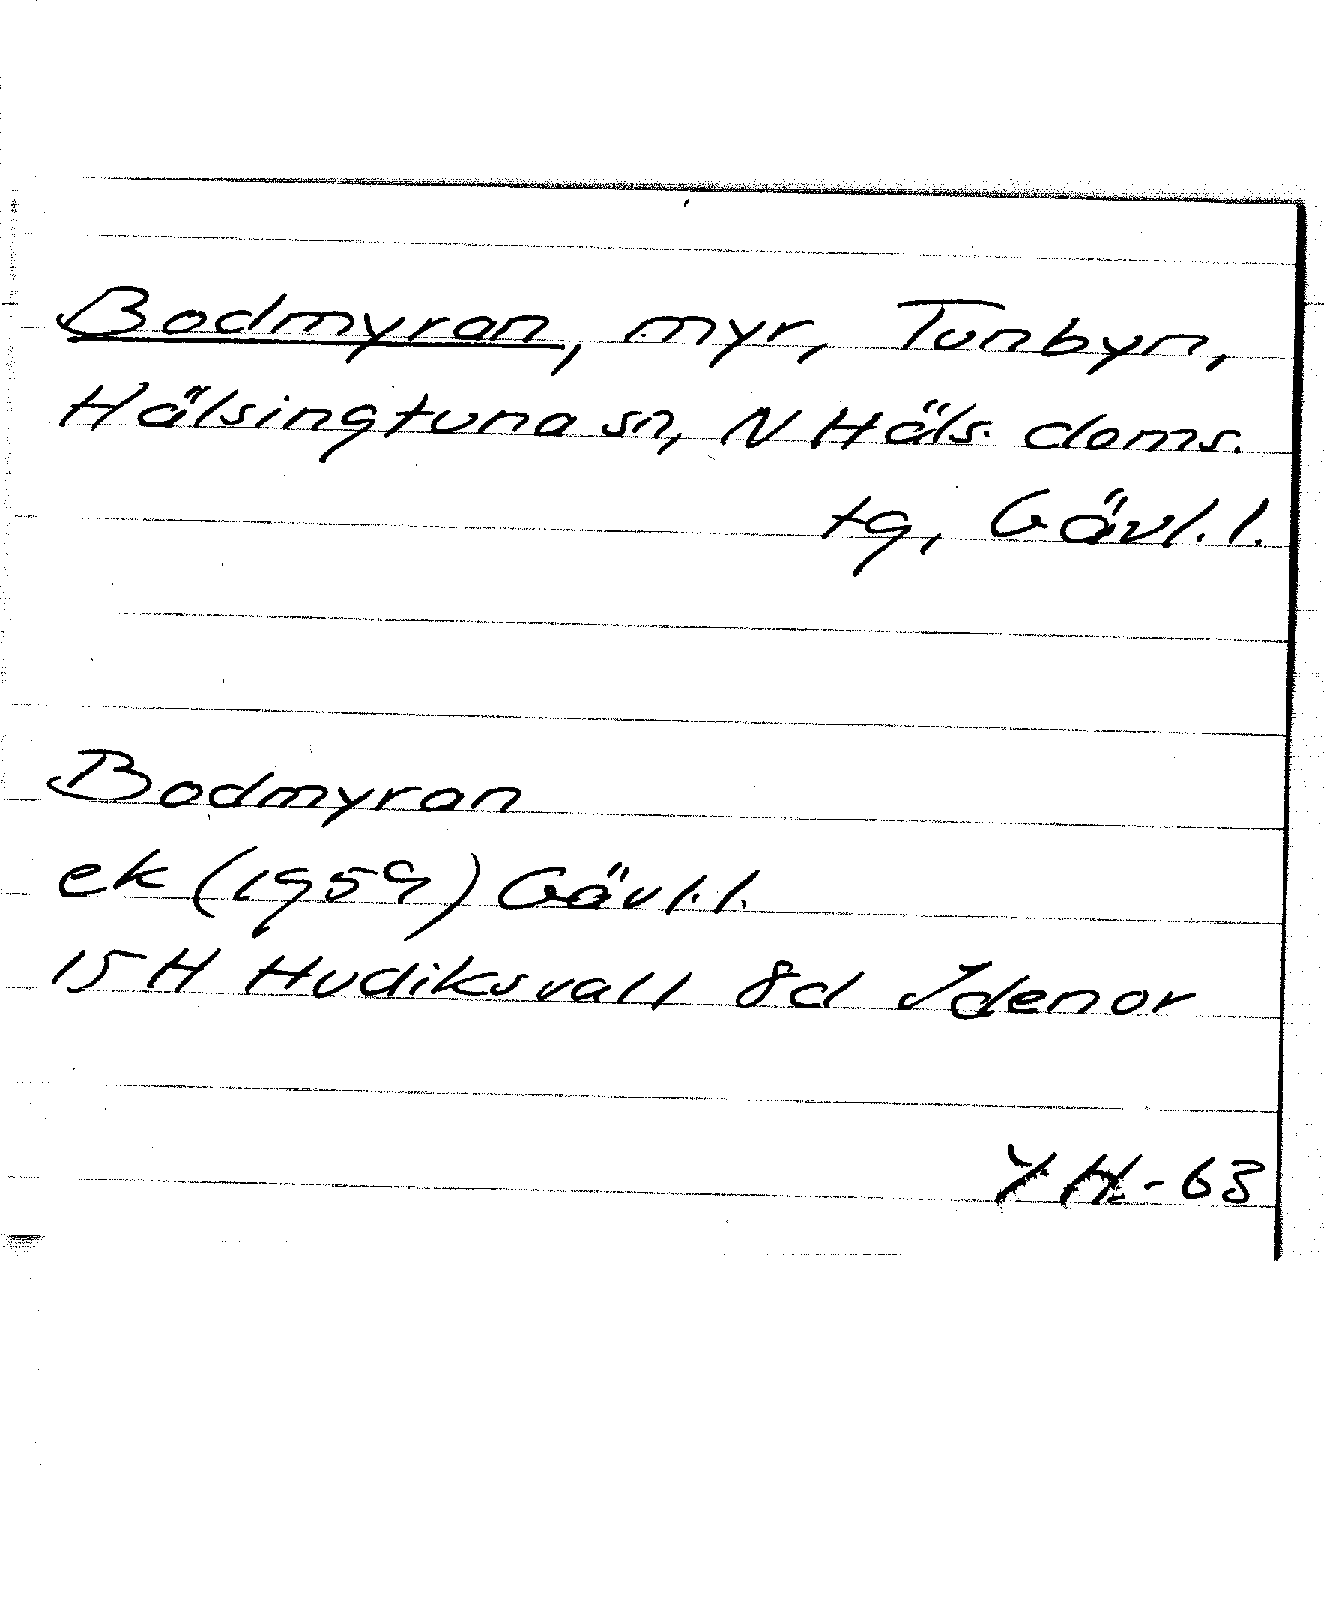 Bodmyran, myr, Tunbyn,
Hälsingtuna sn, N Häls. doms.
tg, Gävl.l.
Bodmyran
ek (1959) Gävl.l.
15H Hudiksvall 8d Idenor
YH.-63